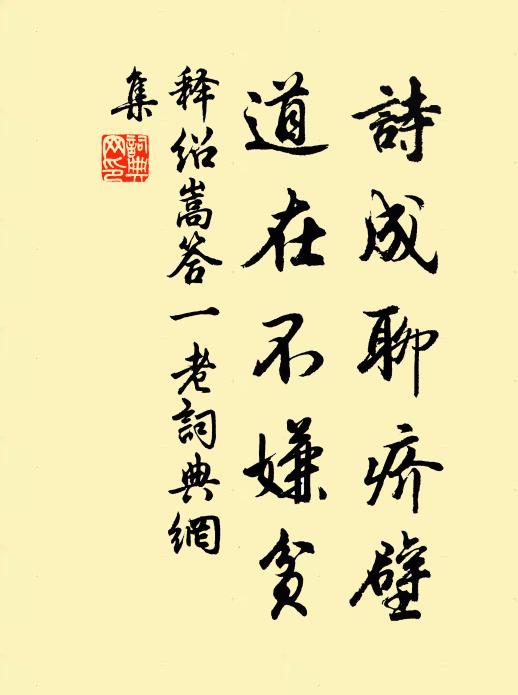 詩成聊疥壁
道在不嫌貧
释紹嵩答一老詞典網
集
詞典
网印